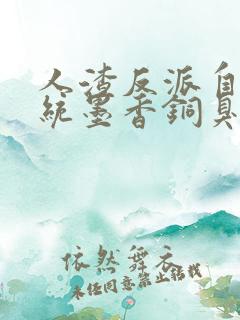 人渣反派自
統墨香銅臭
依然舞衣
未经同意禁止转载